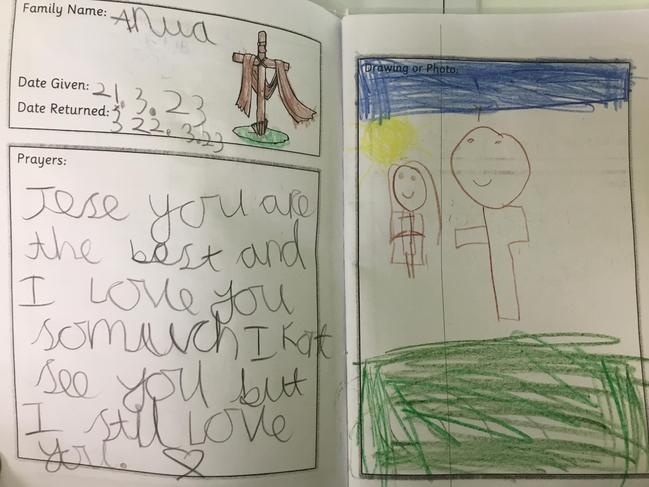 Family Name: Anua
Date Given: 21.3.23
Date Returned: 22.3.23
Prayers:
Jese you are
the best and
I Love you
somuch I Kat
See you but
I still Love
you.
Drawing or Photo: